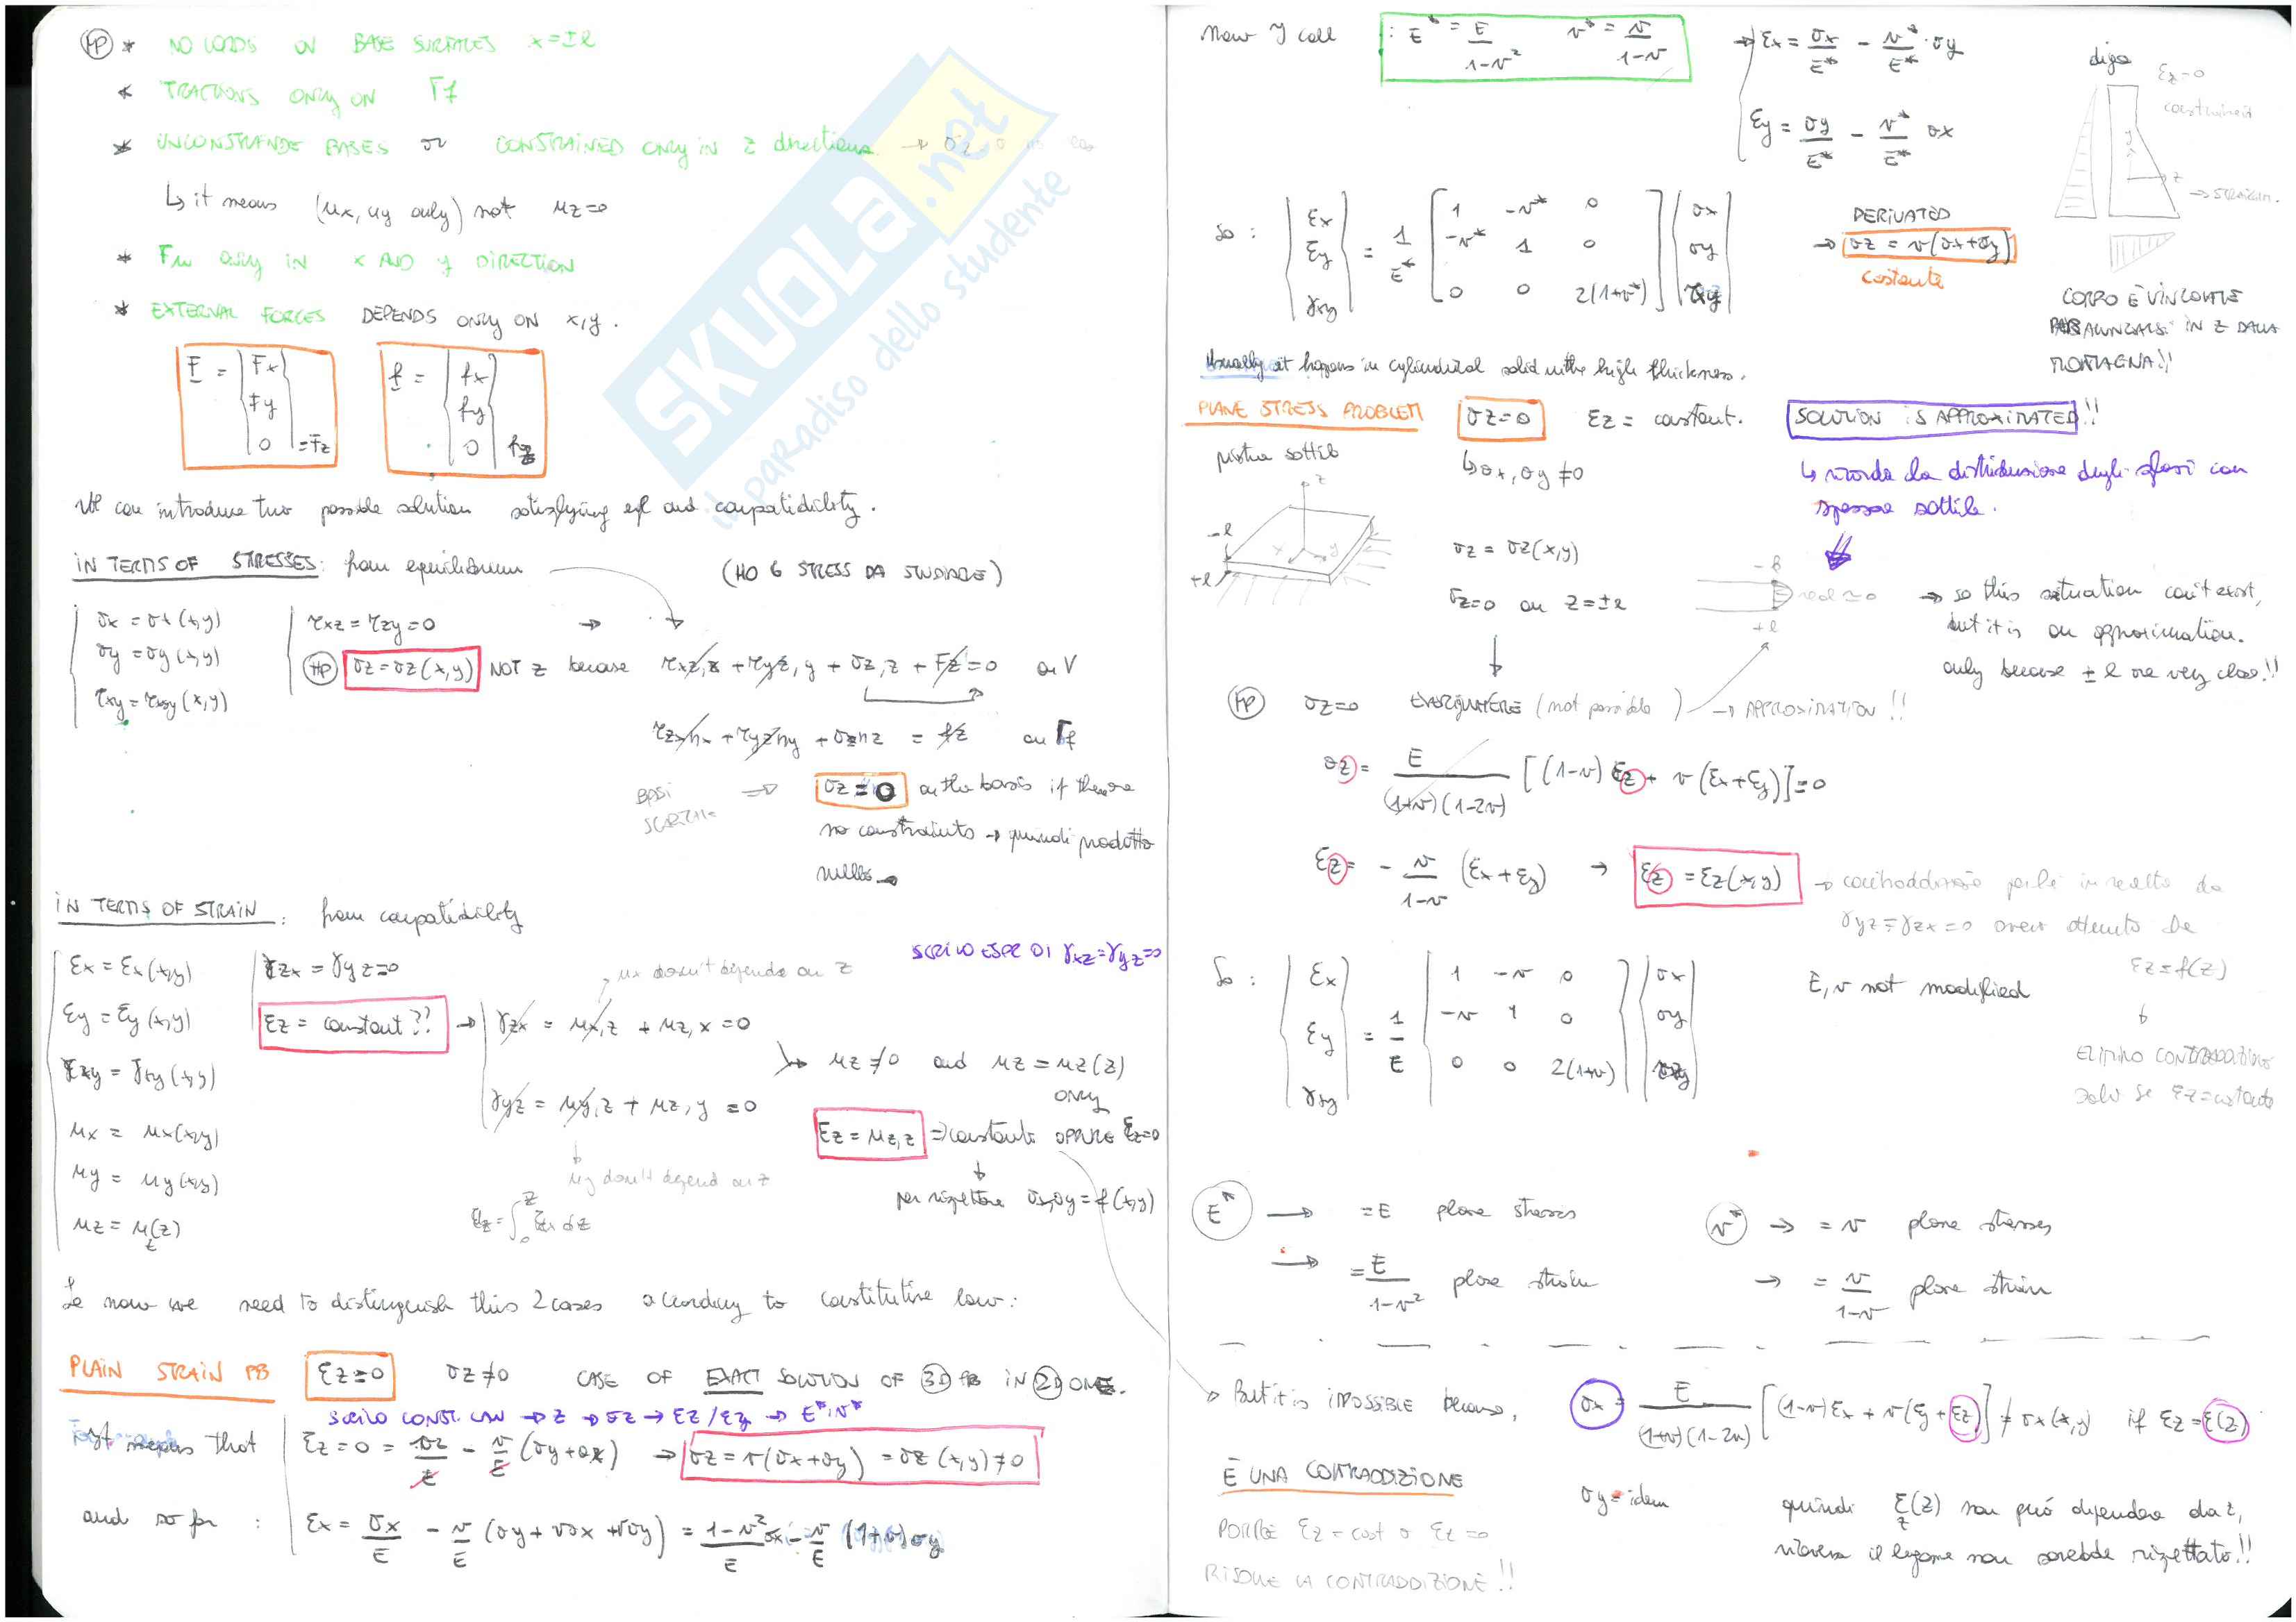 HP * NO LOADS ON BASE SURFACES x=±l
* TRACTIONS ONLY ON Γf
* UNCONSTRAINDE BASES or CONSTRAINED ONLY IN z directions
↳ it means (ux, uy only) not uz=0
* Fm only in x AND y DIRECTION
* EXTERNAL FORCES DEPENDS ONLY ON x,y.
F = | Fx Fy 0 | =Fz
f = | fx fy 0 | fz
We can introduce two possible solution satisfying eq and compatibility.
IN TERMS OF STRESSES: from equilibrium
(HO 6 STRESS DA STUDIARE)
σx = σx(x,y)
σy = σy(x,y)
τxy = τxy(x,y)
τxz = τzy = 0
HP σz = σz(x,y) NOT z because τxz,x + τyz,y + σz,z + Fz = 0 on V
τzxnx + τyzny + σznz = fz on Γf
BASI SCARICHE ⇒ σz = 0 on the basis if there are
no constraints → quindi prodotto
nullo
IN TERMS OF STRAIN: from compatibility
SCRIVO ESPR DI γxz = γyz = 0
εx = εx(x,y)
εy = εy(x,y)
γxy = γxy(x,y)
ux = ux(x,y)
uy = uy(x,y)
uz = uz(z)
γzx = γyz = 0
εz = constant??
→ γzx = ux,z + uz,x = 0
ux doesn't depends on z
γyz = uy,z + uz,y = 0
uy doesn't depend on z
→ uz ≠ 0 and uz = uz(z) ONLY
εz = uz,z ⇒ constante OPPURE εz=0
per rispettare σx,σy = f(x,y)
So now we need to distinguish this 2 cases according to constitutive law:
PLAIN STRAIN PB εz=0 σz≠0 CASE OF EXACT SOLUTION OF 3D PB IN 2D ONE.
SCRIVO CONST. LAW → z → σz → εx/εy → E*ν*
that εz = 0 = σz/E - ν/E (σy+σx) → σz = ν(σx+σy) = σz(x,y) ≠ 0
and so for : εx = σx/E - ν/E (σy + νσx + νσy) = 1-ν²/E σx - ν/E (1+ν)σy
Now I call : E* = E/1-ν² ν* = ν/1-ν
→ εx = σx/E* - ν*/E* · σy
εy = σy/E* - ν*/E* σx
diga
εz=0
constrained
y
z
So : | εx εy γxy | = 1/E* [ 1 -ν* 0
-ν* 1 0
0 0 2(1+ν*) ] | σx σy τxy |
DERIVATED
→ σz = ν(σx+σy)
costante
CORPO È VINCOLATO
IN Z DALLA
MONTAGNA!!
Usually it happens in cylindrical solid with high thickness.
PLANE STRESS PROBLEM σz=0 εz = constant. SOLUTION IS APPROXIMATED!!
piastra sottile
↳ σx, σy ≠ 0
↳ ricorda la distribuzione degli sforzi con
spessore sottile.
-l
+l
z
x
y
σz = σz(x,y)
σz=0 on z=±l
-l
real ≃ 0
+l
→ so this situation can't exist,
but it is an approximation.
only because ± l are very close!!
HP σz=0 EVERYWHERE (not possible) → APPROXIMATION!!
σz = E/(1+ν)(1-2ν) [(1-ν) εz + ν(εx+εy)] = 0
εz = - ν/1-ν (εx+εy) → εz = εz(x,y) → contraddizione perché in realtà da
γyz = γzx = 0 avevo ottenuto che
εz = f(z)
ELIMINO CONTRADDIZIONE
solo se εz=costante
So : | εx εy γxy | = 1/E | 1 -ν 0
-ν 1 0
0 0 2(1+ν) | | σx σy τxy |
E, ν not modified
E* → = E plane stresses
→ = E/1-ν² plane strain
ν* → = ν plane stresses
→ = ν/1-ν plane strain
→ But it is IMPOSSIBLE because, σx = E/(1+ν)(1-2ν) [(1-ν)εx + ν(εy+εz)] ≠ σx(x,y) if εz = ε(z)
È UNA CONTRADDIZIONE
σy = idem
PORRE εz = cost o εz = 0
RISOLVE LA CONTRADDIZIONE!!
quindi εz(z) non può dipendere da z,
il legame non sarebbe rispettato!!
SKUOLA.net
il paradiso dello studente